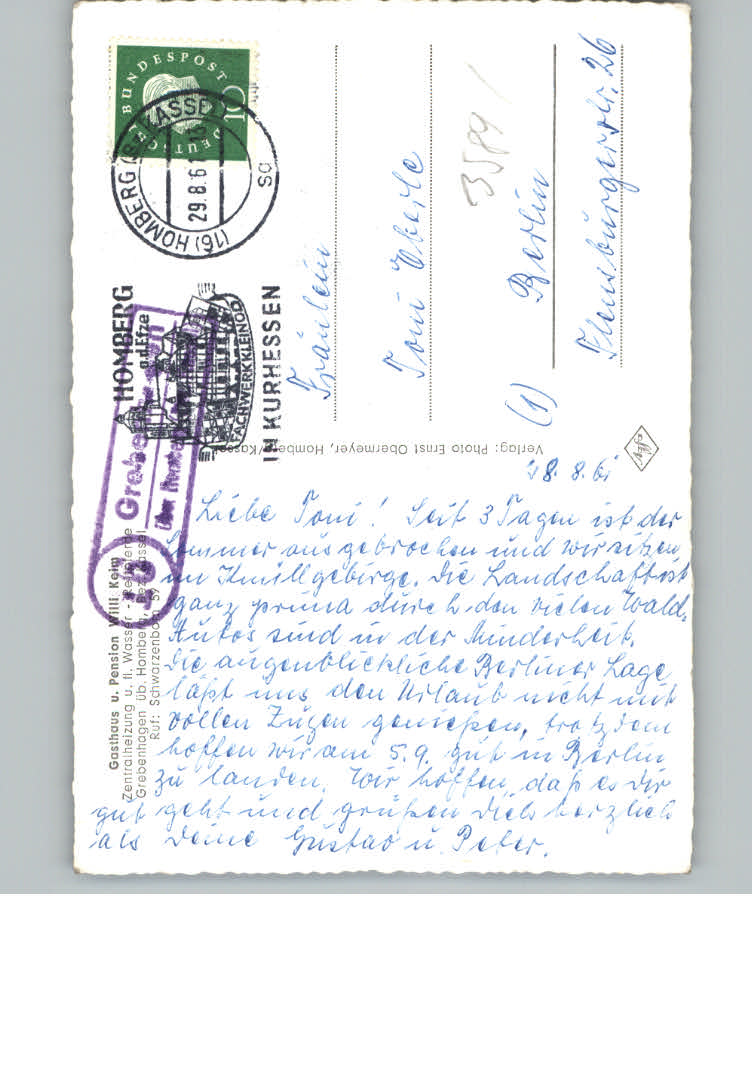 DEUTSCHE BUNDESPOST
10
(16) HOMBERG (Bz. KASSEL)
29.8.61
sd
HOMBERG
a.d. Efze
FACHWERKKLEINOD
IN KURHESSEN
Grebenhagen
über Homberg
3584/
Fräulein
Toni Eberle
(1) Berlin
Flensburgerstr. 26
Verlag: Photo Ernst Obermeyer, Homberg/Kassel
Gasthaus u. Pension Willi Keim
Zentralheizung u. fl. Wasser
Grebenhagen üb. Homberg, Bez. Kassel
Ruf: Schwarzenborn
28.8.61
Liebe Toni! Seit 3 Tagen ist der
Sommer ausgebrochen und wir sitzen
im Knüllgebirge. Die Landschaft ist
ganz prima durch den vielen Wald.
Autos sind in der Minderheit.
Die augenblickliche Berliner Lage
läßt uns den Urlaub nicht mit
vollen Zügen genießen, trotzdem
hoffen wir am 5.9. gut in Berlin
zu landen. Wir hoffen, daß es Dir
gut geht und grüßen Dich herzlich
als Deine Gustav u. Peter.